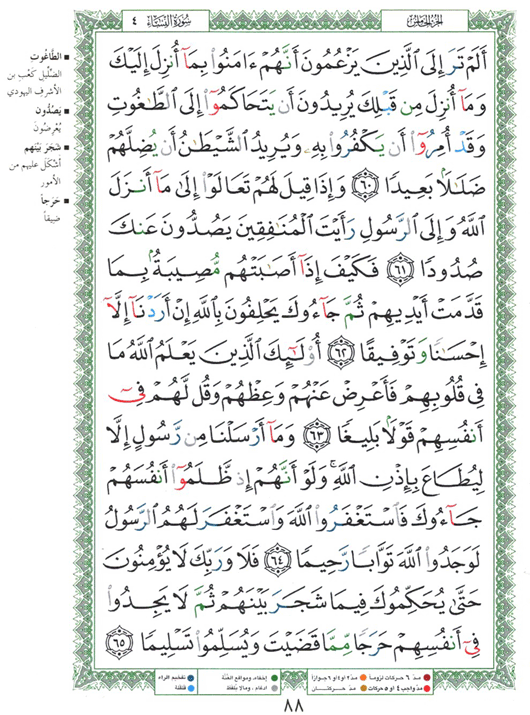 سورة النساء ٤
الجزء الخامس
أَلَمْ تَرَ إِلَى الَّذِينَ يَزْعُمُونَ أَنَّهُمْ ءَامَنُوا۟ بِمَآ أُنزِلَ إِلَيْكَ
وَمَآ أُنزِلَ مِن قَبْلِكَ يُرِيدُونَ أَن يَتَحَاكَمُوٓا۟ إِلَى الطَّـٰغُوتِ
وَقَدْ أُمِرُوٓا۟ أَن يَكْفُرُوا۟ بِهِۦ وَيُرِيدُ الشَّيْطَـٰنُ أَن يُضِلَّهُمْ
ضَلَـٰلَۢا بَعِيدًا ٦٠ وَإِذَا قِيلَ لَهُمْ تَعَالَوْا۟ إِلَىٰ مَآ أَنزَلَ
اللَّهُ وَإِلَى الرَّسُولِ رَأَيْتَ الْمُنَـٰفِقِينَ يَصُدُّونَ عَنكَ
صُدُودًا ٦١ فَكَيْفَ إِذَآ أَصَـٰبَتْهُم مُّصِيبَةٌۢ بِمَا
قَدَّمَتْ أَيْدِيهِمْ ثُمَّ جَآءُوكَ يَحْلِفُونَ بِاللَّهِ إِنْ أَرَدْنَآ إِلَّآ
إِحْسَـٰنًا وَتَوْفِيقًا ٦٢ أُو۟لَـٰٓئِكَ الَّذِينَ يَعْلَمُ اللَّهُ مَا
فِى قُلُوبِهِمْ فَأَعْرِضْ عَنْهُمْ وَعِظْهُمْ وَقُل لَّهُمْ فِىٓ
أَنفُسِهِمْ قَوْلَۢا بَلِيغًا ٦٣ وَمَآ أَرْسَلْنَا مِن رَّسُولٍ إِلَّا
لِيُطَاعَ بِإِذْنِ اللَّهِ ۚ وَلَوْ أَنَّهُمْ إِذ ظَّلَمُوٓا۟ أَنفُسَهُمْ
جَآءُوكَ فَاسْتَغْفَرُوا۟ اللَّهَ وَاسْتَغْفَرَ لَهُمُ الرَّسُولُ
لَوَجَدُوا۟ اللَّهَ تَوَّابًا رَّحِيمًا ٦٤ فَلَا وَرَبِّكَ لَا يُؤْمِنُونَ
حَتَّىٰ يُحَكِّمُوكَ فِيمَا شَجَرَ بَيْنَهُمْ ثُمَّ لَا يَجِدُوا۟
فِىٓ أَنفُسِهِمْ حَرَجًا مِّمَّا قَضَيْتَ وَيُسَلِّمُوا۟ تَسْلِيمًا ٦٥
■ الطَّاغُوتِ
الضِّلِّيل كَعْبِ بن
الأشرفِ اليهودي
■ يَصُدُّون
يُعْرِضُونَ
■ شَجَرَ بَيْنهم
أشْكَلَ عليهم من
الأمورِ
■ حَرَجاً
ضِيقاً
مدّ ٦ حركات لزوماً ● مدّ ٢ أو ٤ أو ٦ جوازاً
مدّ واجب ٤ أو ٥ حركات ● مدّ حركتان
إخفاء، ومواقع الغُنَّة
ادغام، ومالا يُلفَظ
تفخيم الراء
قلقلة
٨٨